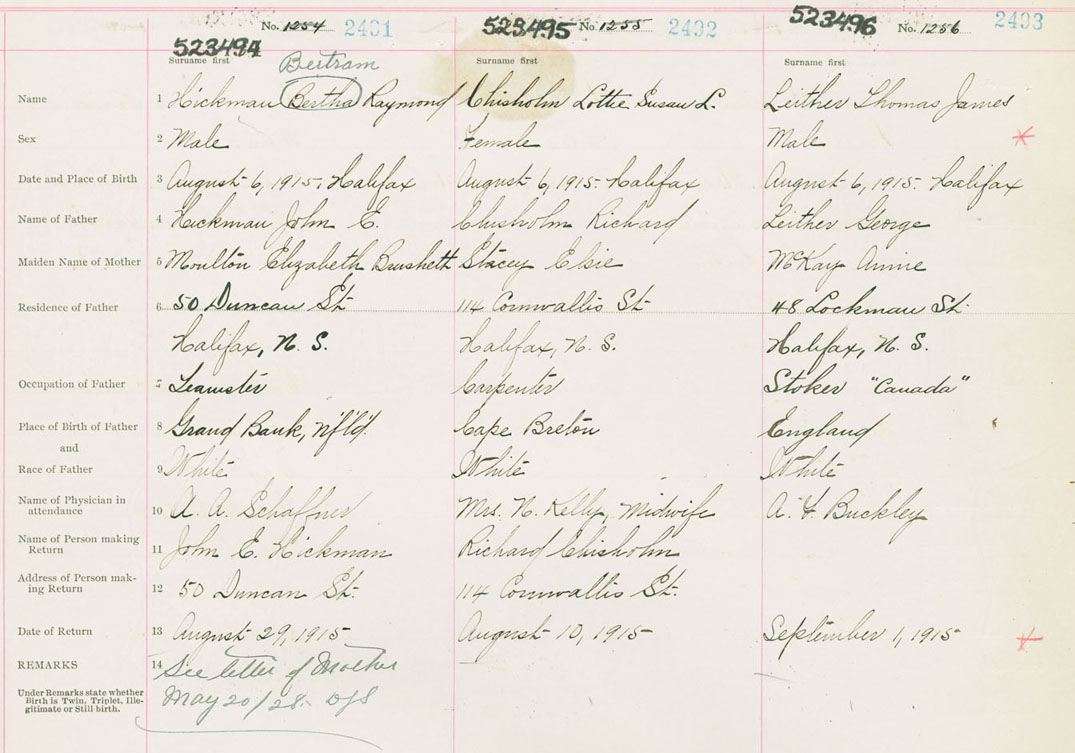 No. 1254 2491 523495 No. 1255 2492 523496 No. 1256 2493
523494
Surname first Bertram Surname first Surname first
Name 1 Hickman Bertha Raymond Chisholm Lottie Susan L. Leither Thomas James
Sex 2 Male Female Male
Date and Place of Birth 3 August 6, 1915. Halifax August 6, 1915- Halifax August 6, 1915. Halifax
Name of Father 4 Hickman John E. Chisholm Richard Leither George
Maiden Name of Mother 5 Moulton Elizabeth Brushett Stacey Elsie McKay Annie
Residence of Father 6 50 Duncan St. 114 Cornwallis St. 48 Lockman St.
Halifax, N. S. Halifax, N. S. Halifax, N. S.
Occupation of Father 7 Teamster Carpenter Stoker "Canada"
Place of Birth of Father 8 Grand Bank, Nfld. Cape Breton England
and
Race of Father 9 White White White
Name of Physician in
attendance 10 A. A. Schaffner Mrs. N. Kelly, Midwife A. F. Buckley
Name of Person making
Return 11 John E. Hickman Richard Chisholm
Address of Person mak-
ing Return 12 50 Duncan St. 114 Cornwallis St.
Date of Return 13 August 29, 1915- August 10, 1915- September 1, 1915-
REMARKS 14 See letter of Mother
Under Remarks state whether
Birth is Twin, Triplet, Ille-
gitimate or Still birth.
May 20/28